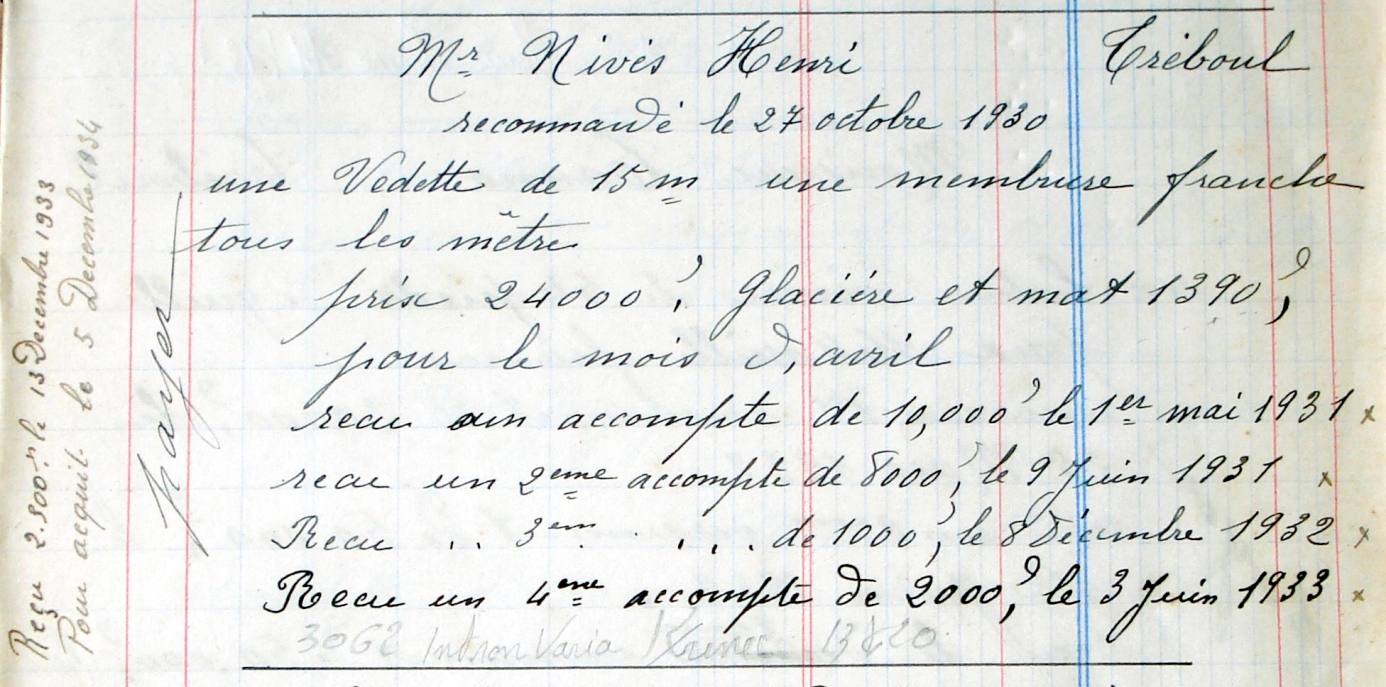 Mr Nivès Henri Tréboul
recommandé le 27 octobre 1930
une Vedette de 15 m une membrure franche
tous les mètre
prix 24000', Glacière et mat 1390',
pour le mois d, avril
recu un accompte de 10,000' le 1er mai 1931 x
recu un 2eme accompte de 8000', le 9 Juin 1931 x
Recu .. 3em . . . . . de 1000', le 8 Décembre 1932 x
Recu un 4eme accompte de 2000', le 3 Juin 1933 x
3062 Intron Varia
payer
Reçu 2.500 fr le 13 Decembre 1933
Pour acquit le 5 Decembre 1934